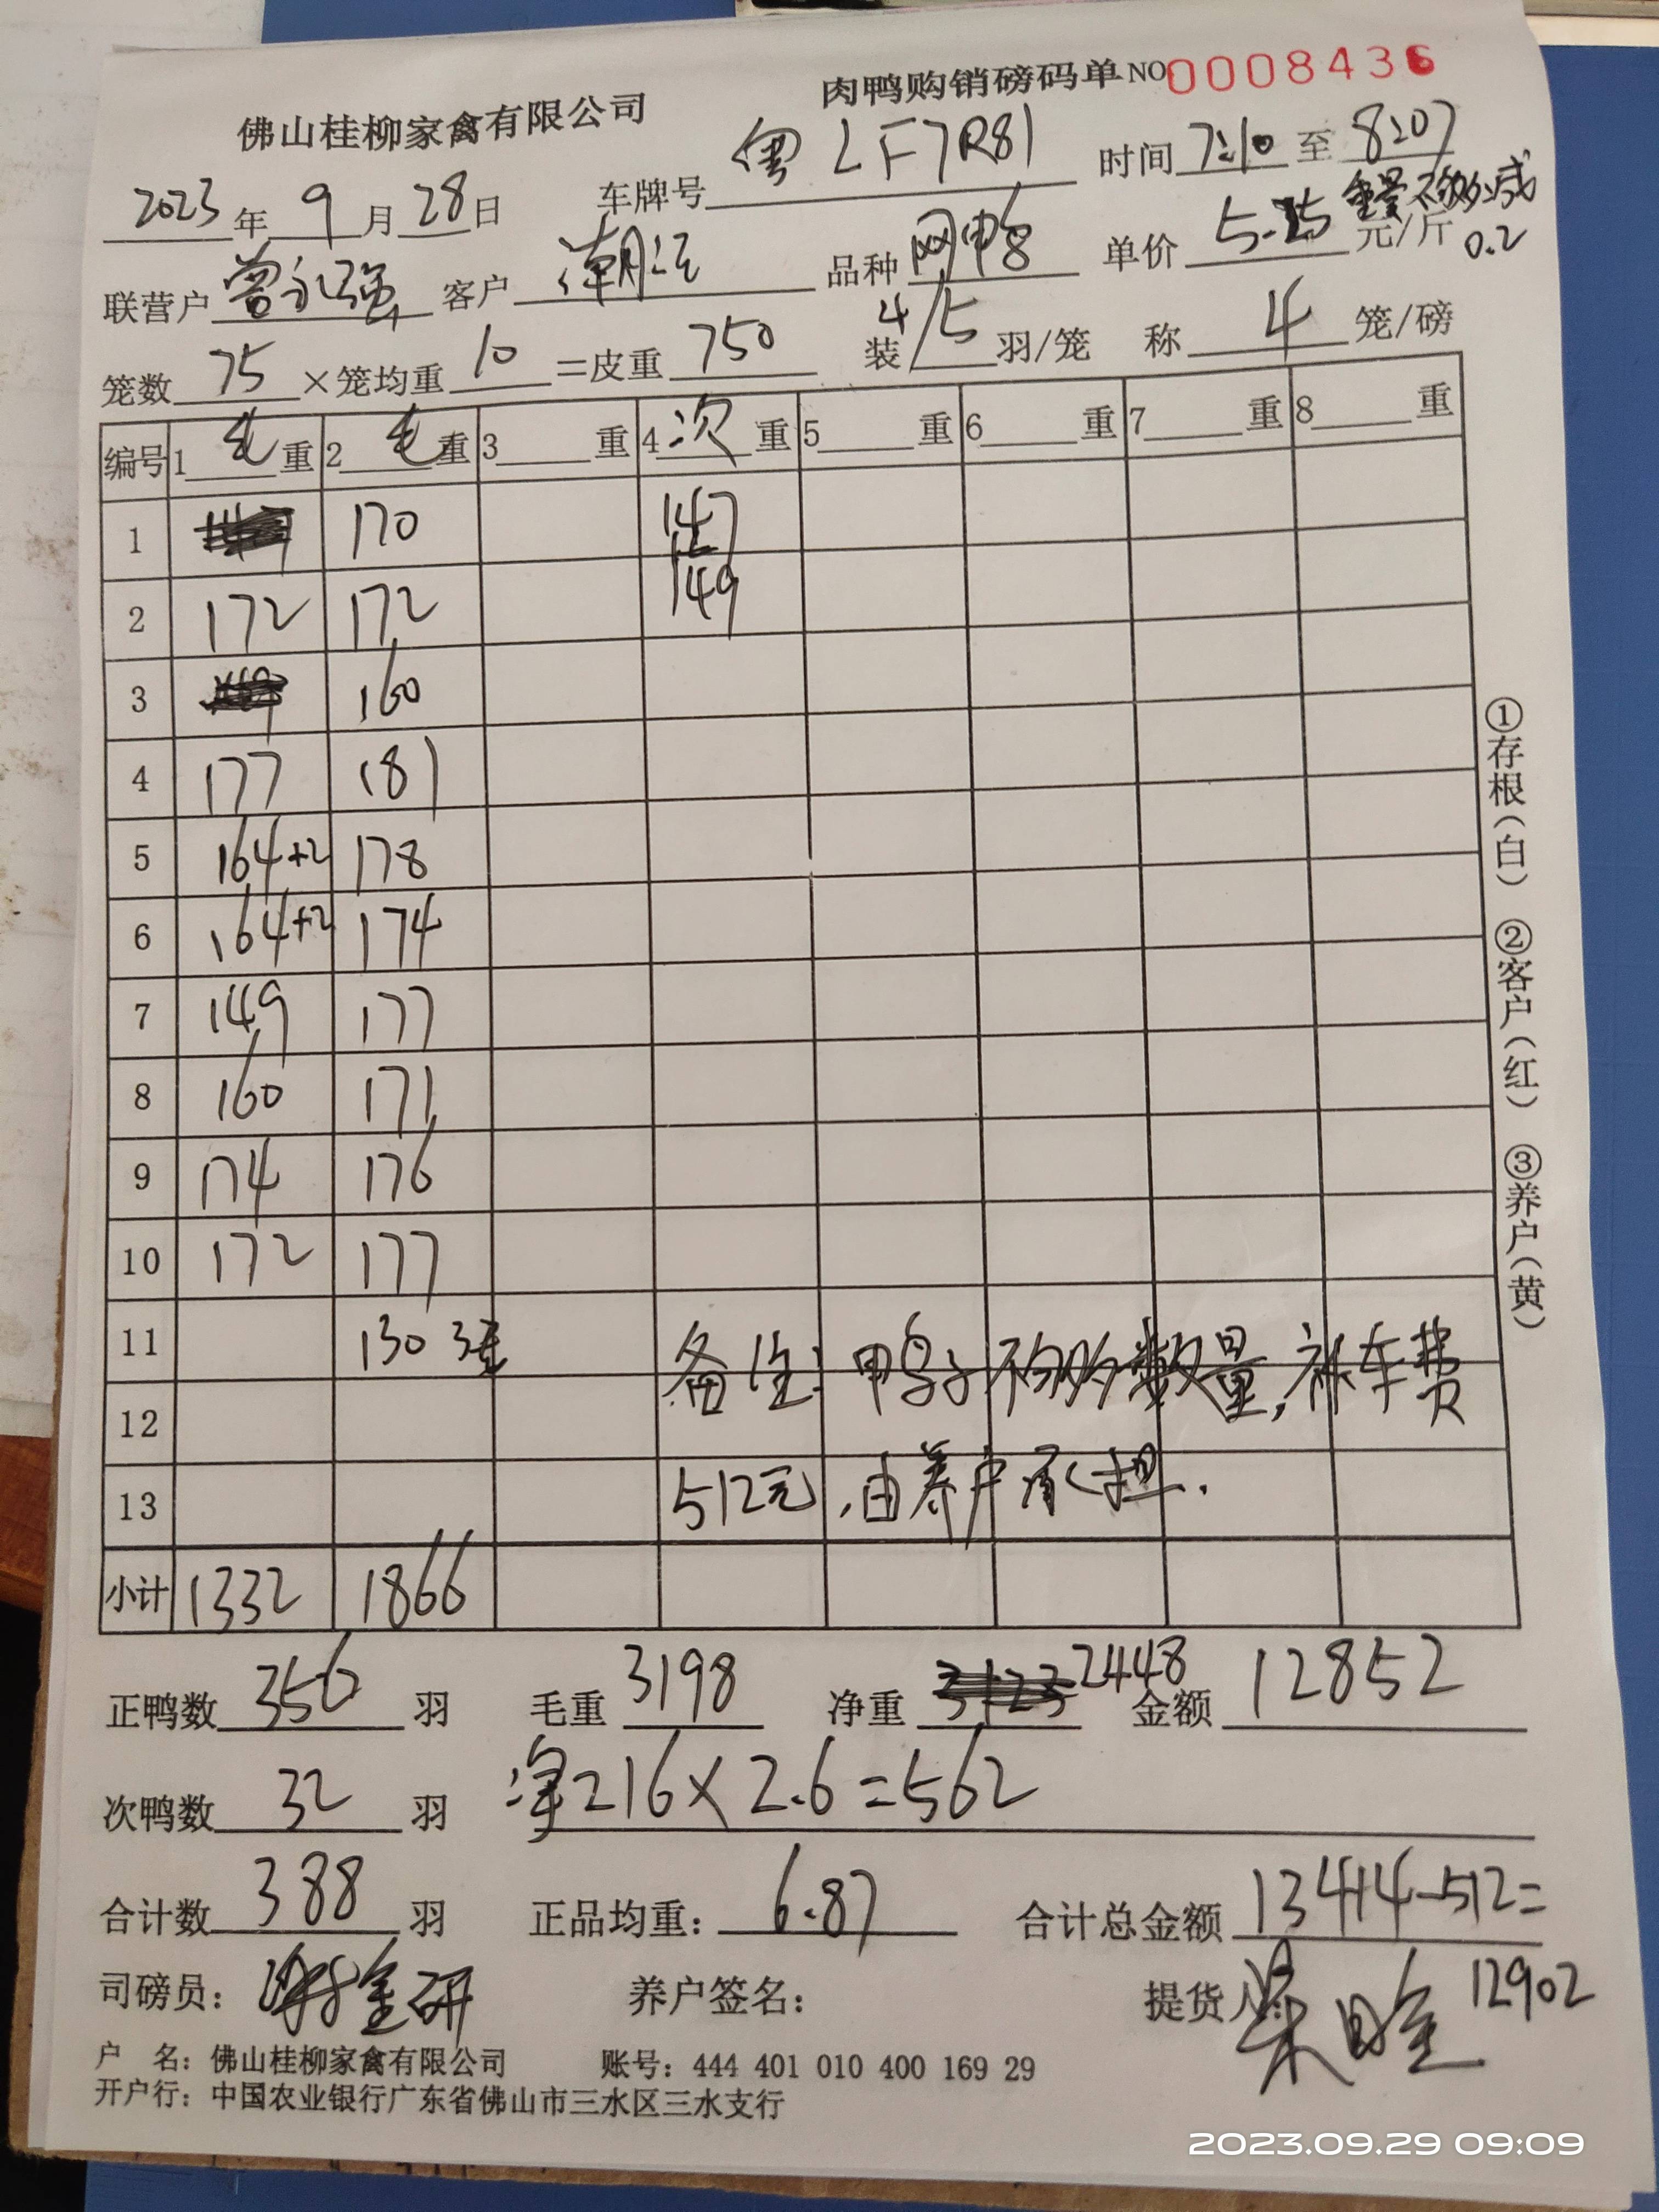 肉鸭购销磅码单 NO 0008436
佛山桂柳家禽有限公司
2023年 9月 28日 车牌号 粤LF7R81 时间 7:10 至 8:07
联营户 曾永强 客户 潮江 品种 网鸭 单价 5.25 元/斤 重量不够减 0.2
笼数 75 ×笼均重 10 =皮重 750 装 4/5 羽/笼 称 4 笼/磅
编号 1 毛 重 2 毛 重 3 重 4 次 重 5 重 6 重 7 重 8 重
1 170 147
2 172 172 149
3 160
4 177 181
5 164+2 178
6 164+2 174
7 149 177
8 160 171
9 174 176
10 172 177
11 130 3笼
12 备注:鸭子不够数量,补车费
13 512元,由养户承担.
小计 1332 1866
正鸭数 356 羽 毛重 3198 净重 2448 金额 12852
次鸭数 32 羽 净216×2.6=562
合计数 388 羽 正品均重: 6.87 合计总金额 13414-512=
12902
司磅员: 养户签名: 提货人:
户 名: 佛山桂柳家禽有限公司 账号: 444 401 010 400 169 29
开户行: 中国农业银行广东省佛山市三水区三水支行
①存根(白) ②客户(红) ③养户(黄)
2023.09.29 09:09